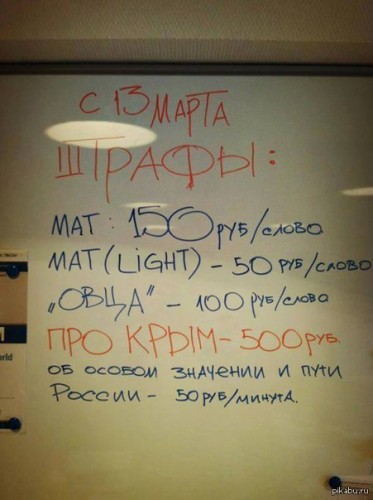 С 13 МАРТА
ШТРАФЫ:
МАТ: 150 РУБ/СЛОВО
МАТ (LIGHT) - 50 РУБ/СЛОВО
„ОВЦА" - 100 РУБ/СЛОВО
ПРО КРЫМ - 500 РУБ.
ОБ ОСОБОМ ЗНАЧЕНИИ И ПУТИ
РОССИИ - 50 РУБ/МИНУТА.
pikabu.ru